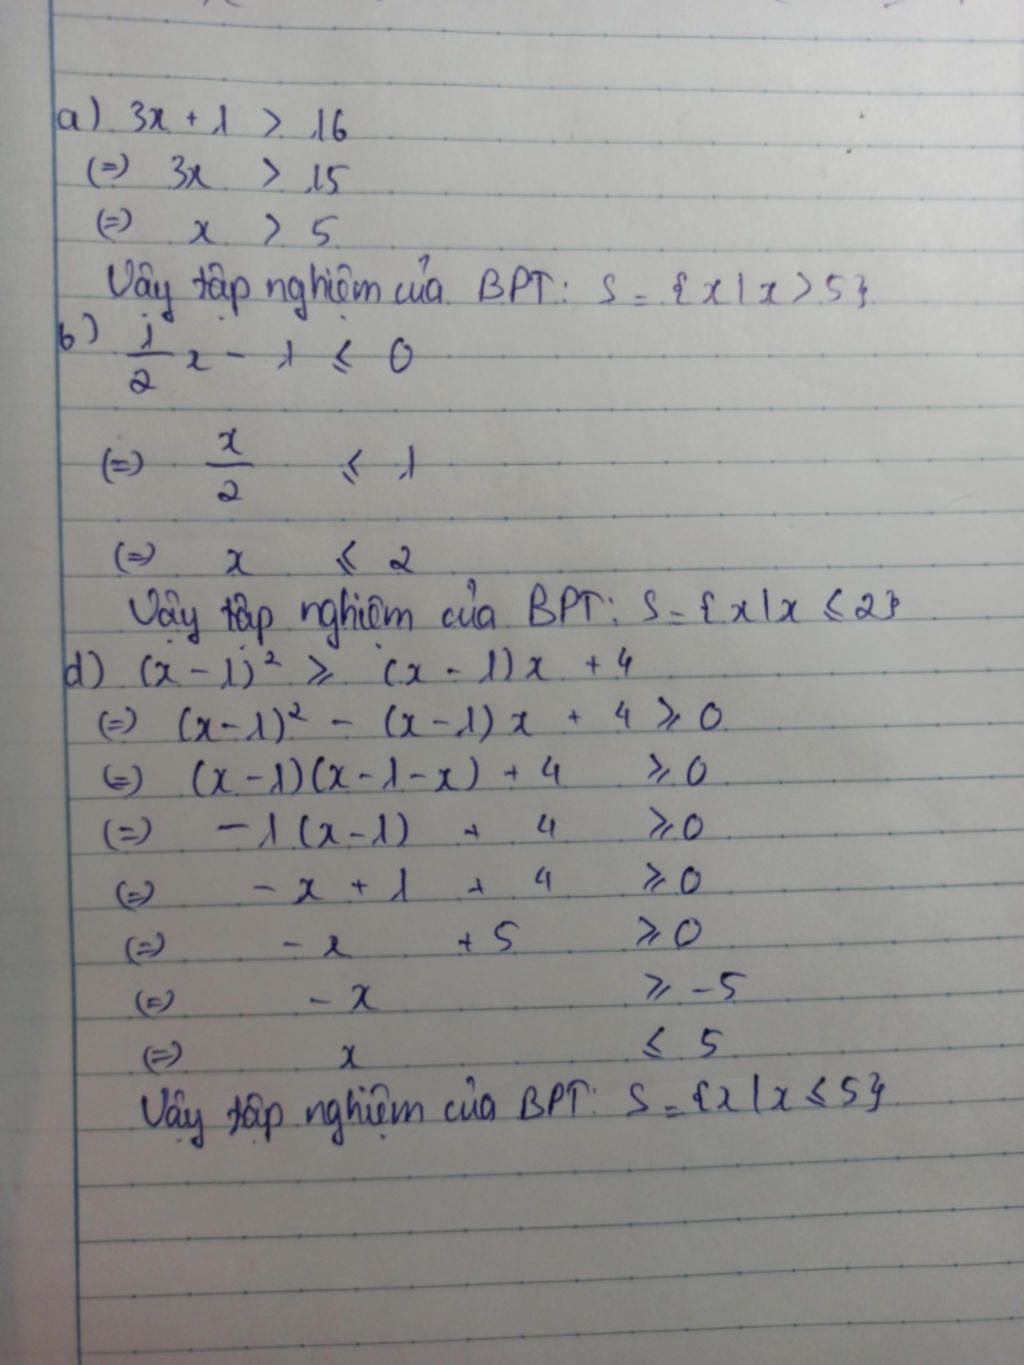 a) 3x + 1 > 16
(=) 3x > 15
(=) x > 5
Vậy tập nghiệm của BPT: S = {x | x > 5}
b) 1/2 x - 1 ≤ 0
(=) x/2 ≤ 1
(=) x ≤ 2
Vậy tập nghiệm của BPT: S = {x | x ≤ 2}
d) (x - 1)² ≥ (x - 1)x + 4
(=) (x - 1)² - (x - 1)x + 4 ≥ 0
(=) (x - 1)(x - 1 - x) + 4 ≥ 0
(=) -1(x - 1) + 4 ≥ 0
(=) -x + 1 + 4 ≥ 0
(=) -x + 5 ≥ 0
(=) -x ≥ -5
(=) x ≤ 5
Vậy tập nghiệm của BPT: S = {x | x ≤ 5}